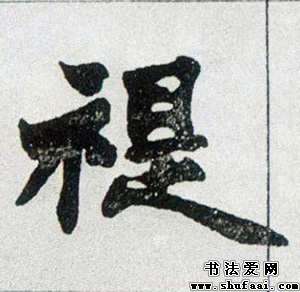 禔
书法爱网
www.shufaai.com